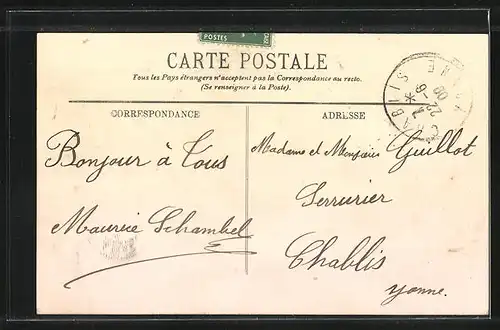 POSTES
CARTE POSTALE
Tous les Pays étrangers n'acceptent pas la Correspondance au recto.
(Se renseigner à la Poste).
CORRESPONDANCE
ADRESSE
CHABLIS
22 - 9
YONNE
Bonjour à Tous
Maurice Schambel
Madame et Monsieur Guillot
Serrurier
Chablis
Yonne.